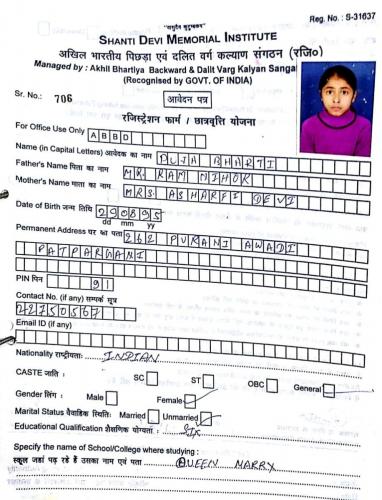 Reg. No. : S-31637
SHANTI DEVI MEMORIAL INSTITUTE
अखिल भारतीय पिछड़ा एवं दलित वर्ग कल्याण संगठन (रजि०)
Managed by : Akhil Bhartiya Backward & Dalit Varg Kalyan Sanga
(Recognised by GOVT. OF INDIA)
Sr. No.: 706
आवेदन पत्र
रजिस्ट्रेशन फार्म / छात्रवृत्ति योजना
For Office Use Only A B B D
Name (in Capital Letters) आवेदक का नाम PUJA BHARTI
Father's Name पिता का नाम MR. RAM NIHOR
Mother's Name माता का नाम MRS. ASHARFI DEVI
Date of Birth जन्म तिथि 290895
dd mm yy
Permanent Address घर का पता 262 PURANI AWADI
PATPARGANI
PIN पिन 91
Contact No. (if any) सम्पर्क सूत्र
42750567
Email ID (if any)
Nationality राष्ट्रीयताः INDIAN
CASTE जाति : SC ST OBC General
Gender लिंग : Male Female
Marital Status वैवाहिक स्थितिः Married Unmarried
Educational Qualification शैक्षणिक योग्यताः
Specify the name of School/College where studying :
स्कूल जहां पढ़ रहे हैं उसका नाम एवं पता QUEEN MARRY